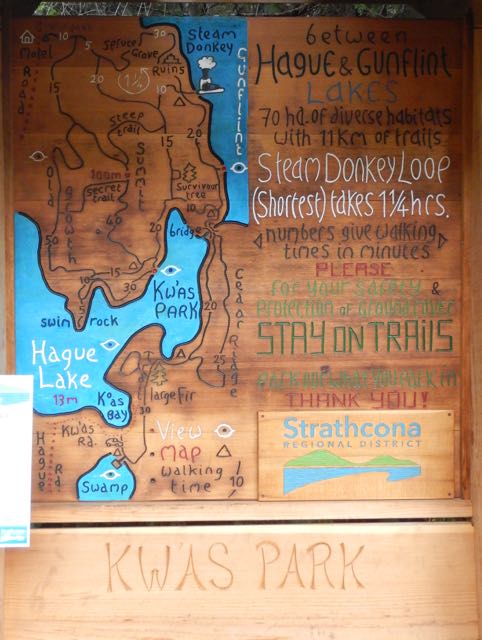 between
Hague & Gunflint
LAKES
70 hd. of diverse habitats
with 11 KM of trails
Steam Donkey Loop
(Shortest) takes 1 1/4 hrs.
numbers give walking
times in minutes
PLEASE
For your safety &
protection of ground cover
STAY ON TRAILS
Pack out what you pack in
THANK YOU!
Strathcona
REGIONAL DISTRICT
Motel
Road
10
5
Spruce
Grove
30
Ruins
Steam
Donkey
Gunflint
20
1 1/4
10
5
steep
trail
15
20
Summit
Old
growth
100m
Secret
trail
Survivour
tree
40
10
bridge
50
10
15
30
5
swim rock
KW'AS
PARK
Cedar Ridge
20
25
Hague
Lake
13m
K'as
BAY
large Fir
30
KW'AS
Rd.
Hague
Rd
Swamp
View
Map
walking
time
10
KW'AS PARK